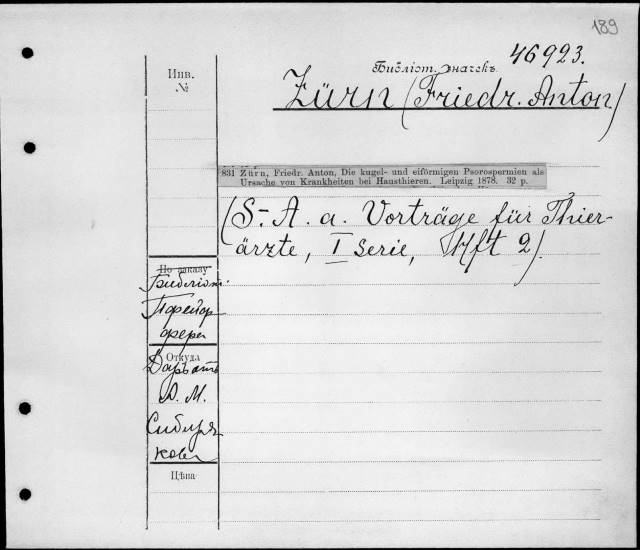 189
46923.
Библіот. значекъ
Zürn (Friedr. Anton)
Инв.
№
831 Zürn, Friedr. Anton, Die kugel- und eiförmigen Psorospermien als
Ursache von Krankheiten bei Hausthieren. Leipzig 1878. 32 p.
(S.-A. a. Vorträge für Thier-
ärzte, I Serie, Hft 2).
По заказу
Библіот.
Пфейф
фера
Откуда
Даръ отъ
А. М.
Сибиря
кова
Цѣна